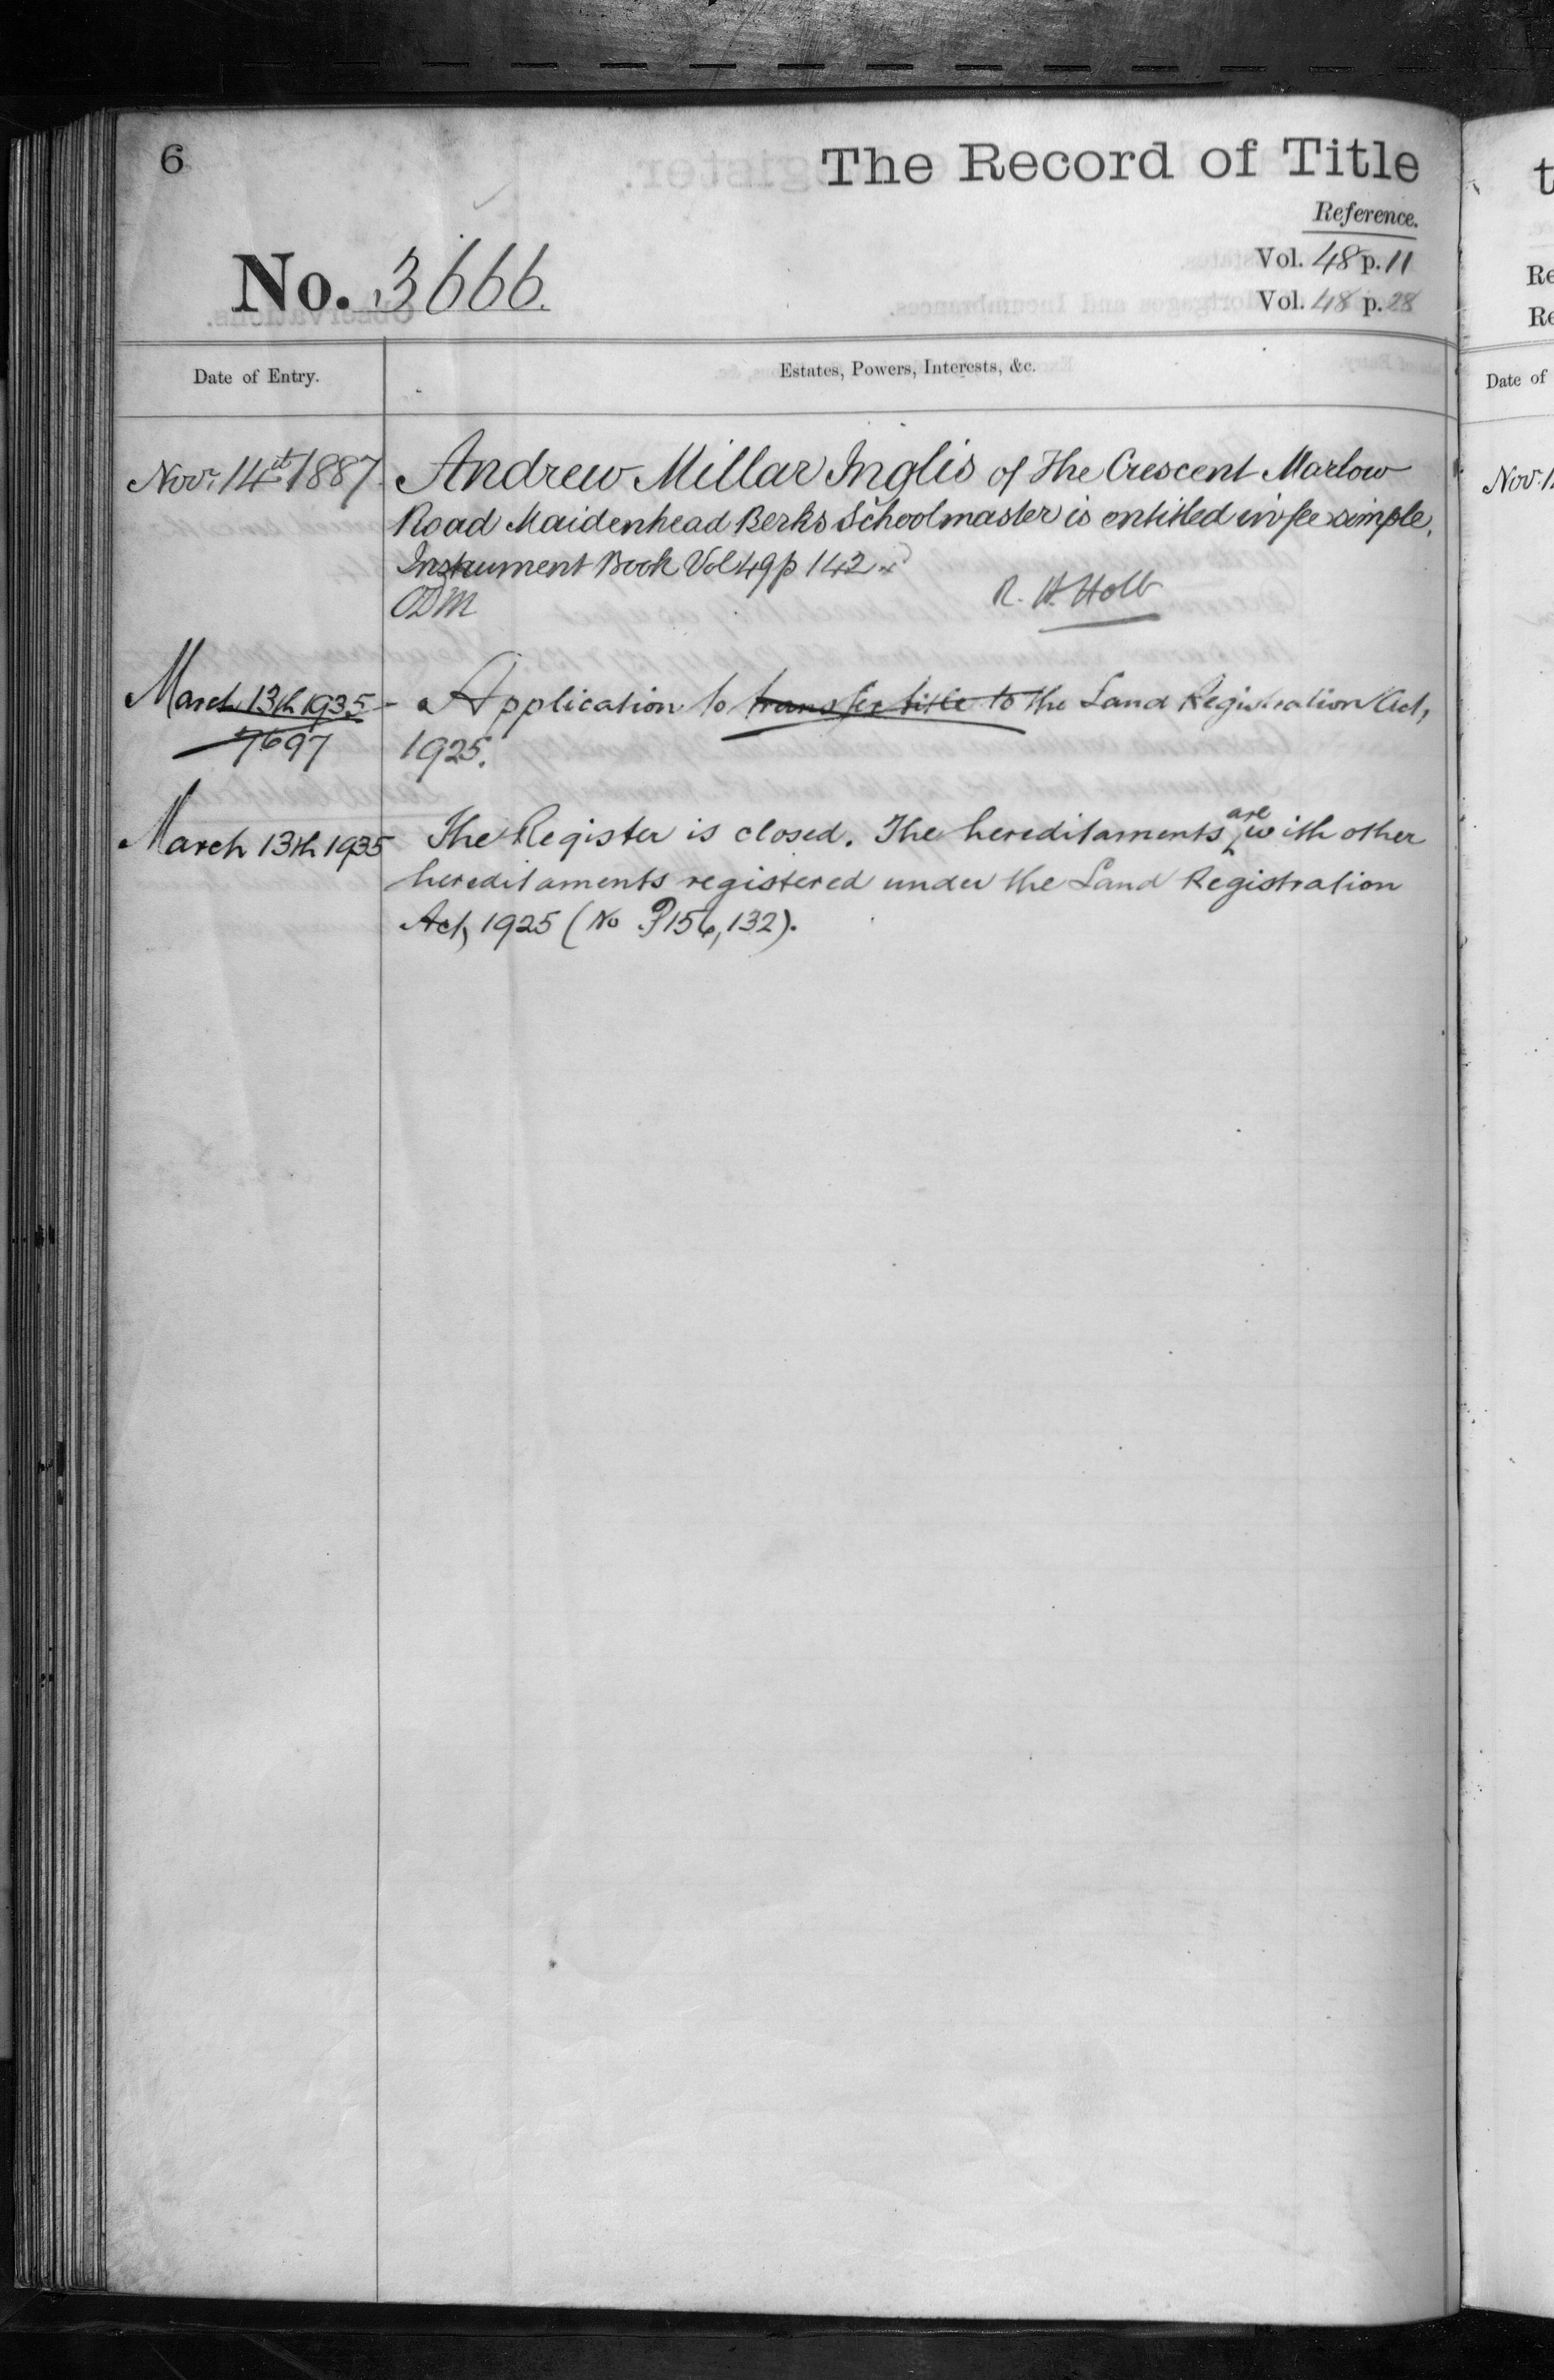 6
The Record of Title
Reference.
No. 3666.
Vol. 48 p. 11
Vol. 48 p. 28
Date of Entry.
Estates, Powers, Interests, &c.
Novr. 14th 1887.
Andrew Millar Inglis of The Crescent Marlow
Road Maidenhead Berks Schoolmaster is entitled in fee simple.
Instrument Book Vol 49 p 142
R. H. Holt
March 13th 1935
7697
Application to transfer title to the Land Registration Act,
1925.
March 13th 1935
The Register is closed. The hereditaments are with other
hereditaments registered under the Land Registration
Act, 1925 (No P156,132).
t
Re
Re
Date of
Nov. 1